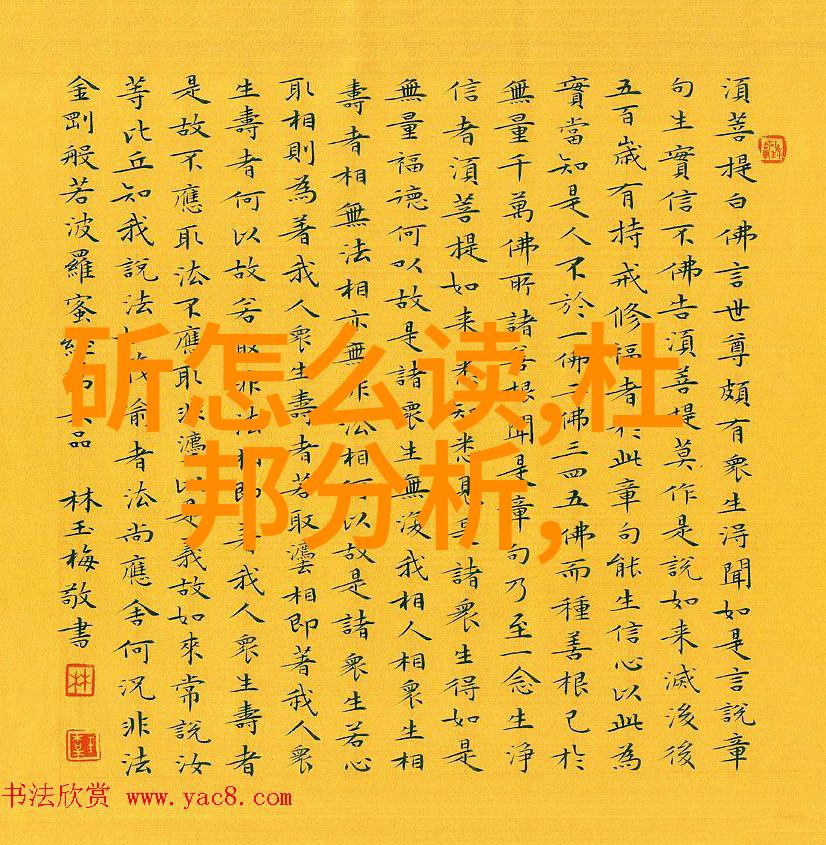 須菩提白佛言世尊頗有衆生得聞如是言說章
句生實信不佛告須菩提莫作是說如来滅後後
五百歲有持戒修福者於此章句能生信心以此為
實當知是人不於一佛二佛三四五佛而種善根已於
無量千萬佛所諸善根聞是章句乃至一念生淨
信者須菩提如来悉知悉見是諸衆生得如是
無量福德何以故是諸衆生無復我相人相衆生相
壽者相無法相亦無非法相何以故是諸衆生若心
取相則為著我人衆生壽者若取灋相即著我人衆
生壽者何以故若取非法相即著我人衆生壽者
是故不應取法不應取非灋以是義故如來常說汝
等比丘知我說法筏喻者法尚應舍何況非法
金剛般若波羅蜜經品 林玉梅敬書
林
斫怎么读,杜
邦分析,
书法欣赏 www.yac8.com